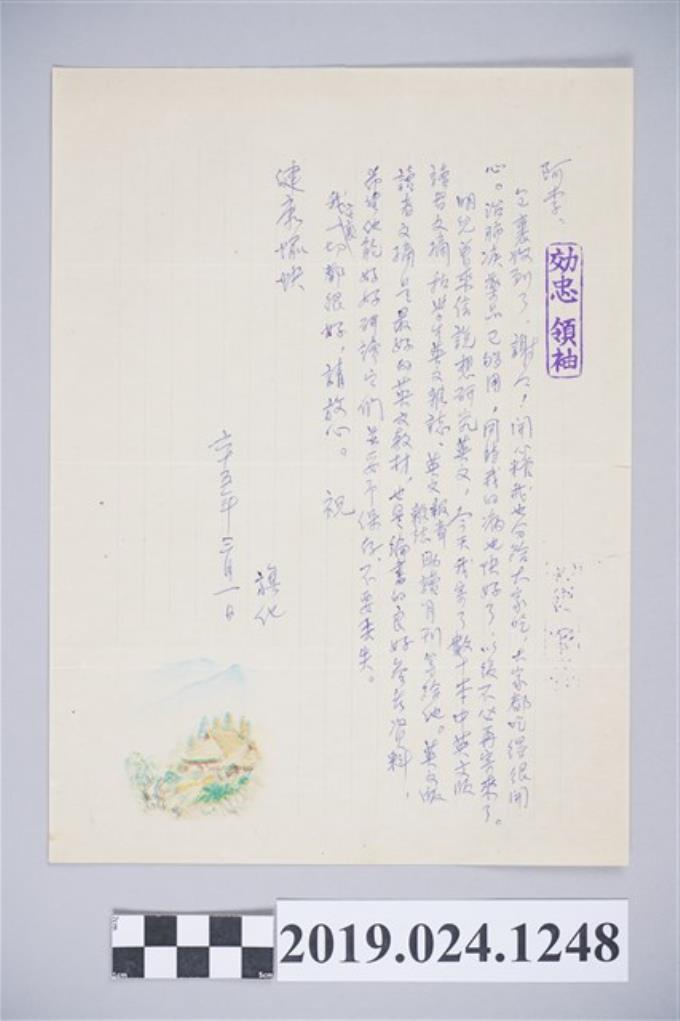 阿李:
包裹收到了,謝々!開心糖我也分給大家吃,大家都吃得很開
心。治肺疾藥品已够用,同時我的病也快好了,以後不必再寄來了。
明兒曾來信說想研究英文,今天我寄了數十本中英文版
讀者文摘和學生英文雜誌、英文報章雜誌助讀月刊等給他。英文版
讀者文摘是最好的英文教材,也是編書的良好參考資料,
希望他能好好研讀它們並妥予保存,不要丟失。
我這裏一切都很好,請放心。 祝
健康愉快
旗化
六十五年三月一日
効忠 領袖
2019.024.1248
5cm